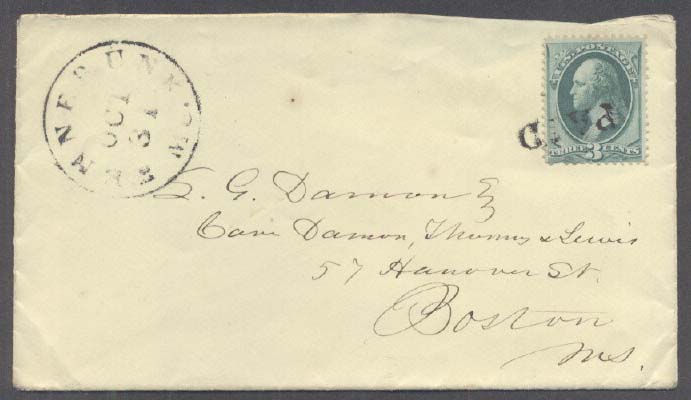 KENNEBUNK. ME
OCT
31
U.S. POSTAGE
PAID
THREE 3 CENTS
L. G. Damon Esq
Care Damon, Thomas & Lewis
57 Hanover St.
Boston
Ms.